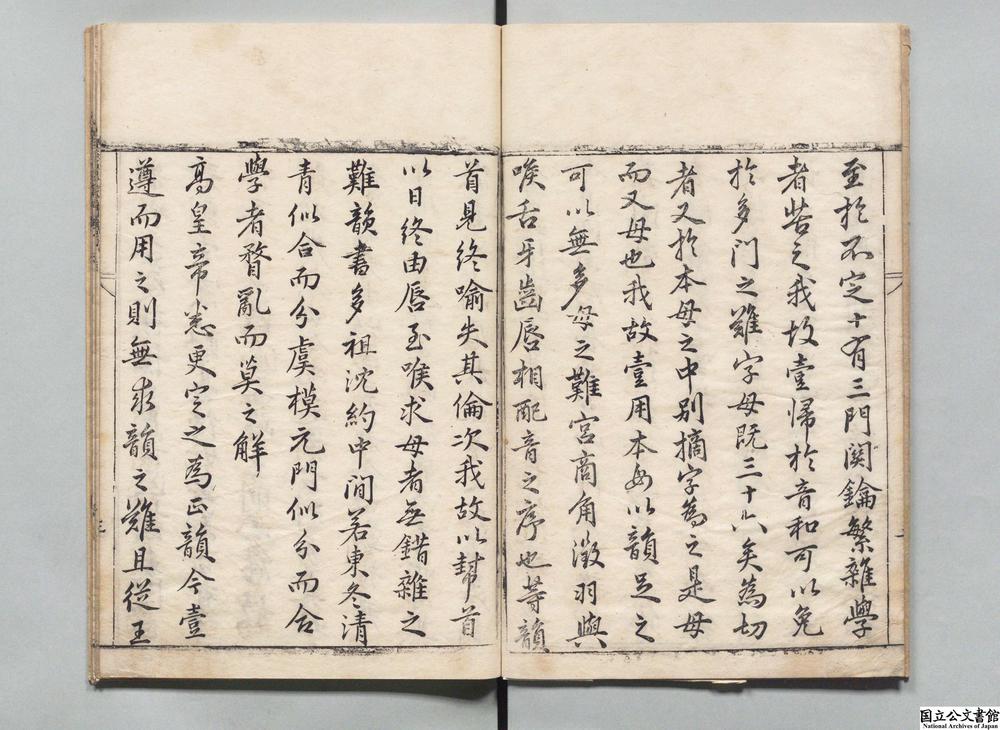 至於不定十有三門関鑰繁雜學
者苦之我故壹歸於音和可以免
於多門之難字母既三十六矣為切
者又於本母之中別摘字為之是母
而又母也我故壹用本母以韻足之
可以無多母之難宮商角徵羽與
喉舌牙齒唇相配音之序也等韻
首見終喻失其倫次我故以幫首
以日終由唇至喉求母者無錯雜之
難韻書多祖沈約中間若東冬清
青似合而分虞模元門似分而合
學者瞀亂而莫之解
高皇帝悉更定之為正韻今壹
遵而用之則無求韻之難且從王
三
国立公文書館
National Archives of Japan